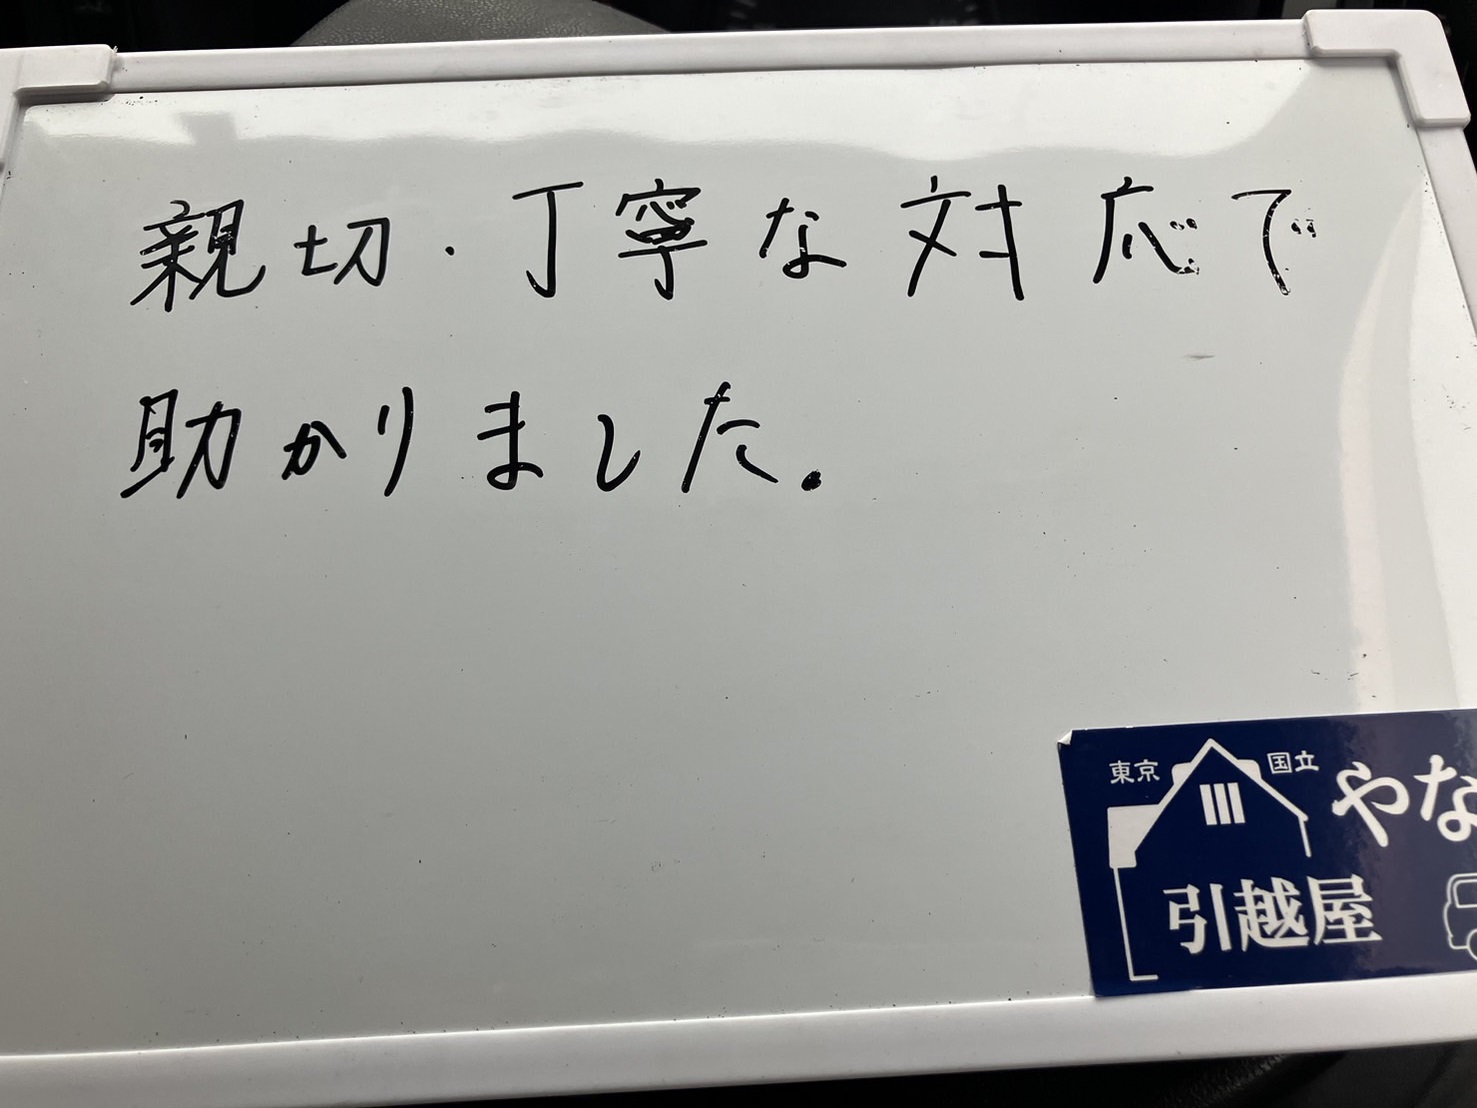 親切・丁寧な対応で
助かりました.
東京 国立 やな
引越屋